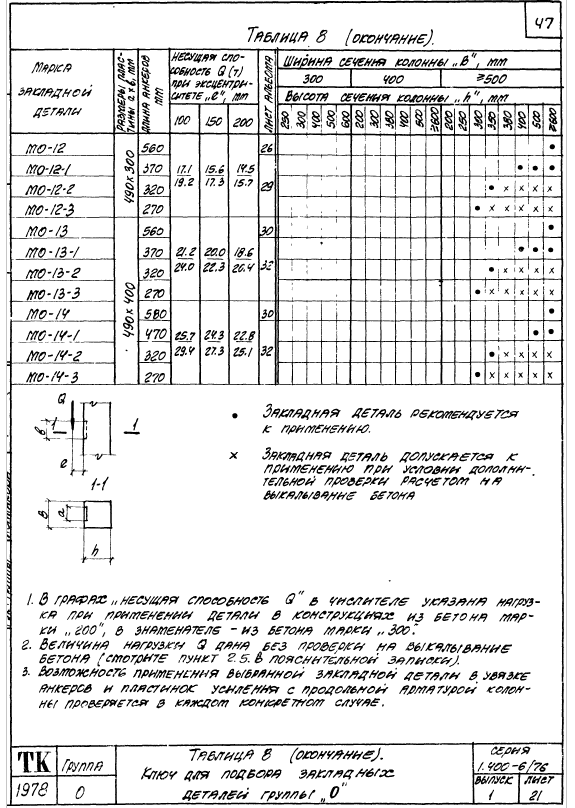 47
Таблица 8 (окончание).
Марка закладной детали
Размеры пластины а×в, мм
Длина анкеров мм
Несущая способность Q (т) при эксцентриситете „е", мм
100 150 200
Лист альбома
Ширина сечения колонны „В", мм
300 400 ≥500
Высота сечения колонны „h", мм
250 300 400 500 600 300 350 400 500 ≥600
490×300
490×400
МО-12 560 26 •
МО-12-1 370 17.1 15.6 14.5 • • •
МО-12-2 320 19.2 17.3 15.7 29 • × × × ×
МО-12-3 270 • × × × × ×
МО-13 560 30 •
МО-13-1 370 21.2 20.0 18.6 • • •
МО-13-2 320 24.0 22.3 20.4 32 • × × × ×
МО-13-3 270 • × × × × ×
МО-14 580 30 •
МО-14-1 470 25.7 24.3 22.8 • •
МО-14-2 320 29.4 27.3 25.1 32 • × × × ×
МО-14-3 270 • × × × × ×
Q
1 1
в
е
1-1
В
а
h
• Закладная деталь рекомендуется
к применению.
× Закладная деталь допускается к
применению при условии дополни-
тельной проверки расчетом на
выкалывание бетона
1. В графах „Несущая способность Q" в числителе указана нагруз-
ка при применении детали в конструкциях из бетона мар-
ки „200", в знаменателе - из бетона марки „300".
2. Величина нагрузки Q дана без проверки на выкалывание
бетона (смотрите пункт 2.5. в пояснительной записки).
3. Возможность применения выбранной закладной детали в увязке
анкеров и пластинок усиления с продольной арматурой колон-
ны проверяется в каждом конкретном случае.
ТК
1978
Группа
О
Таблица 8 (окончание).
Ключ для подбора закладных
деталей группы „О"
Серия
1.400-6/76
Выпуск Лист
1 21